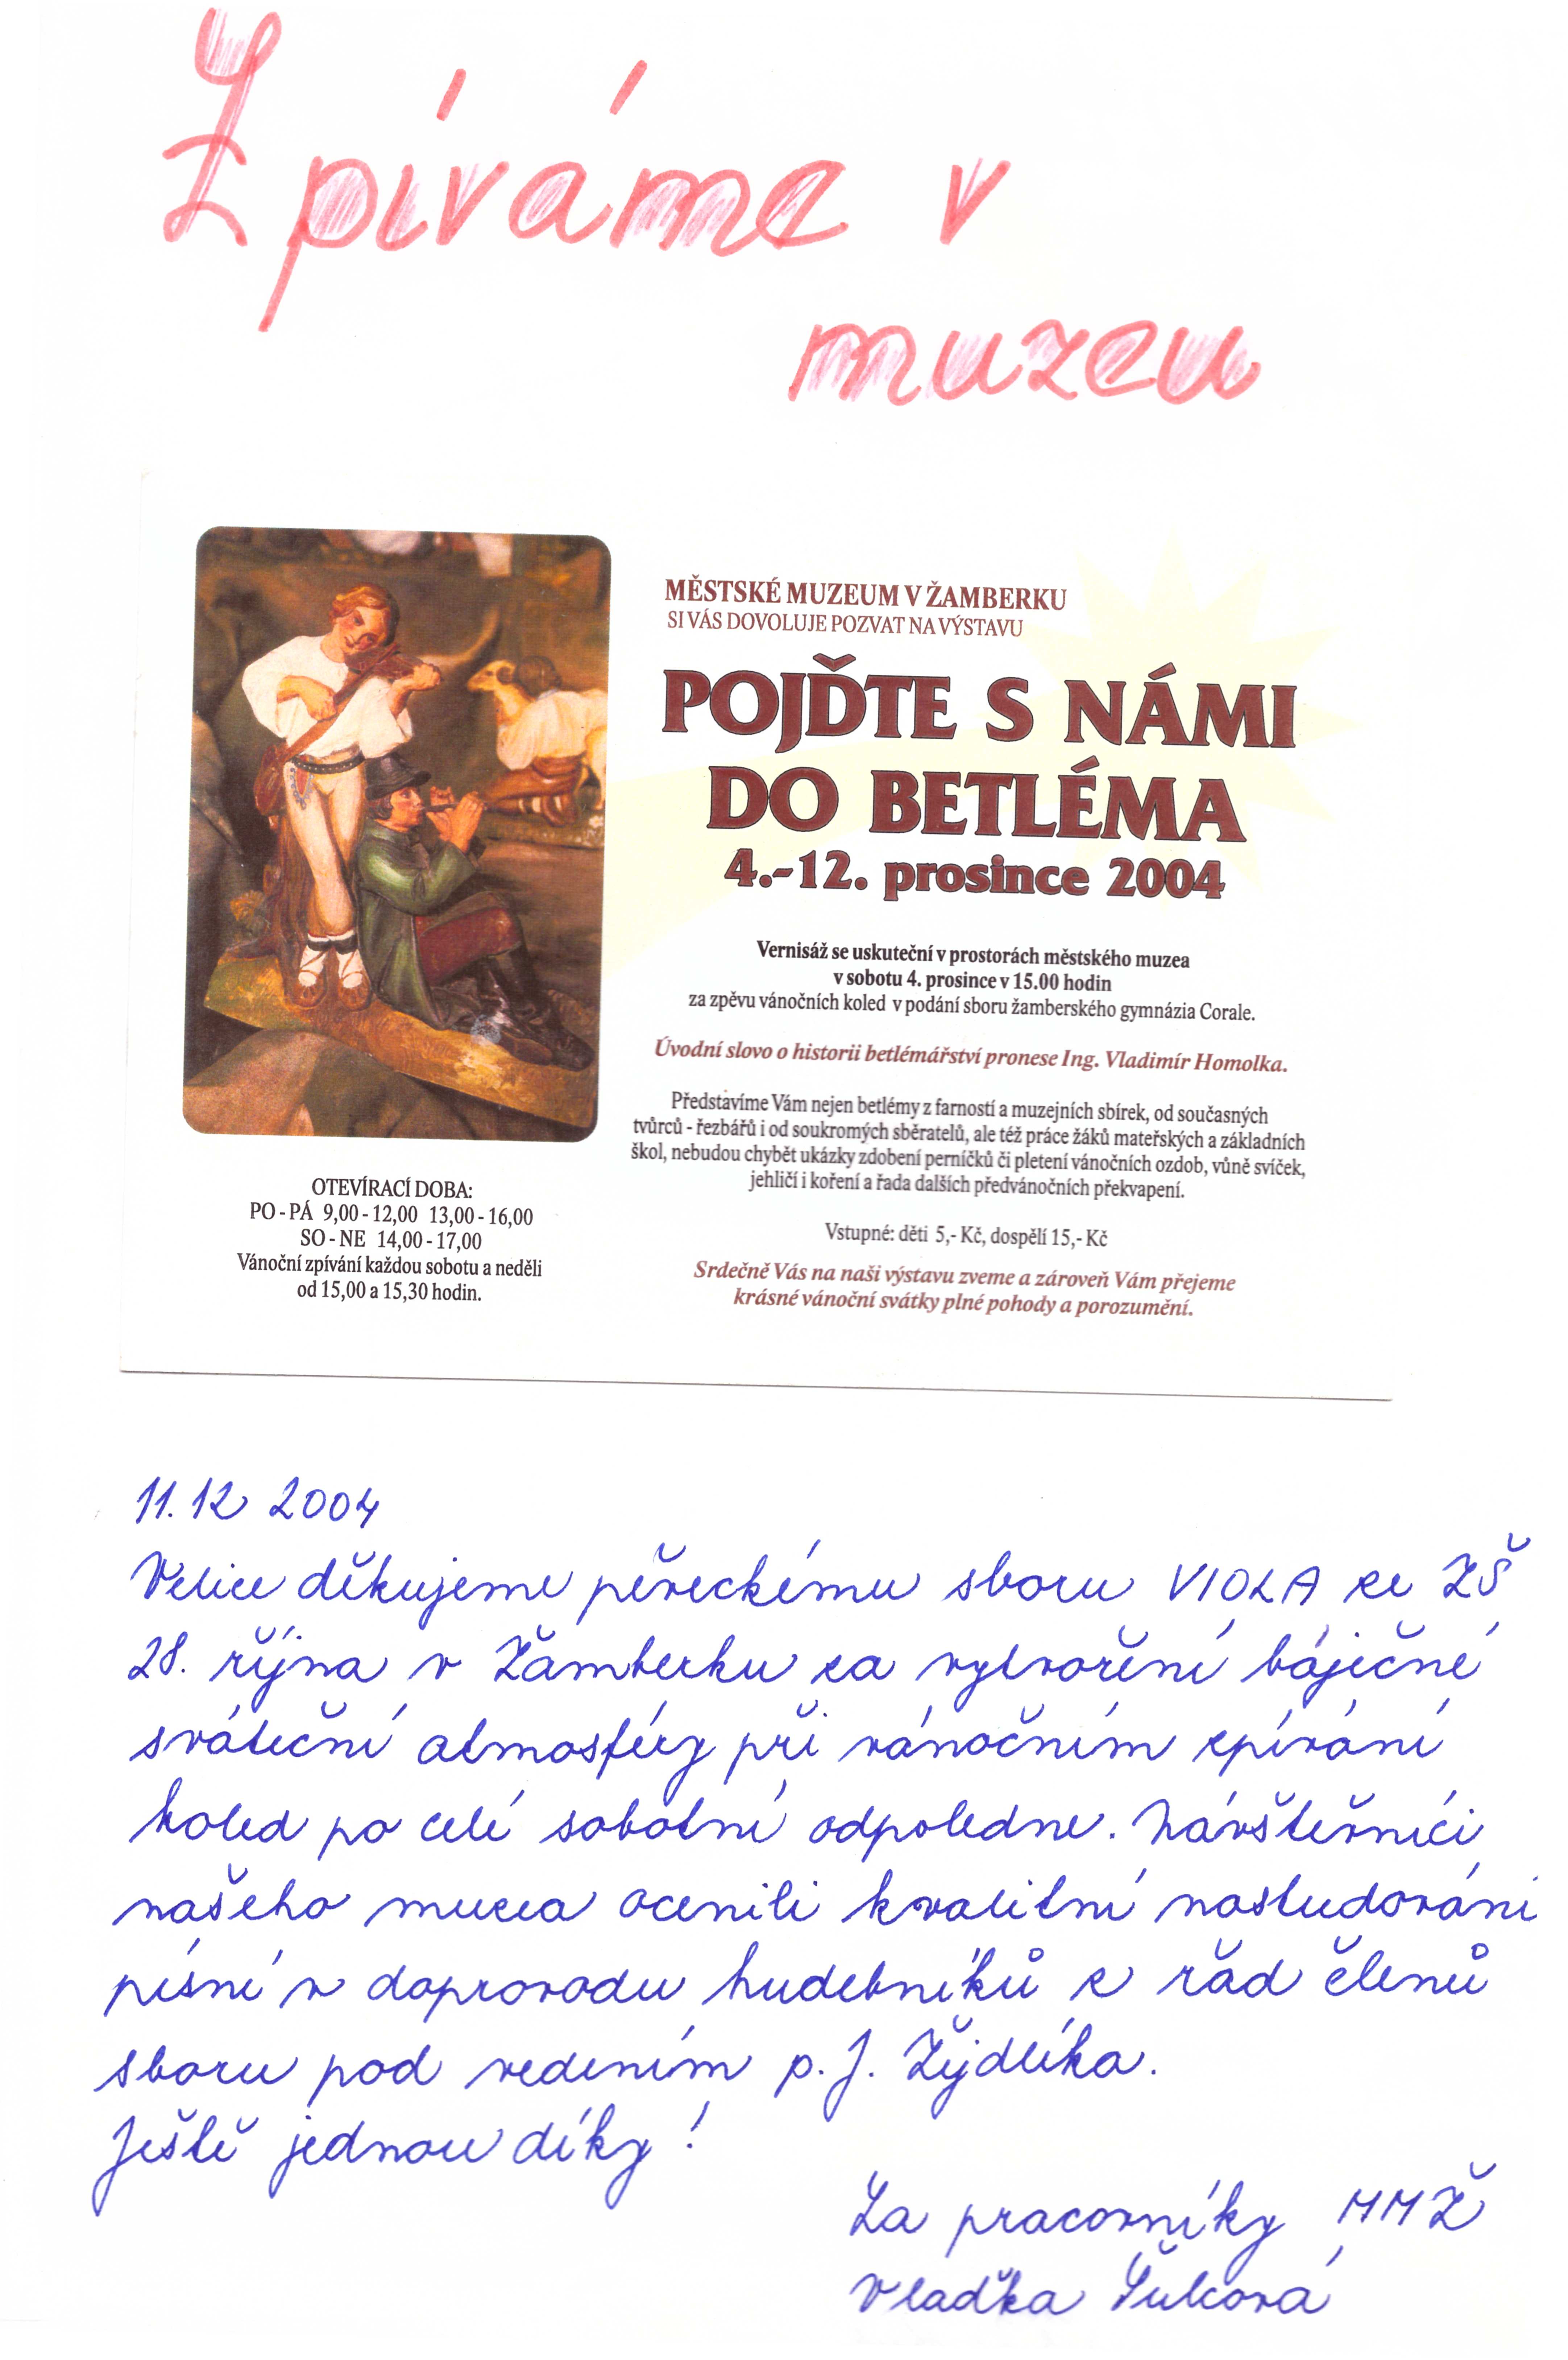 Zpíváme v
muzeu
MĚSTSKÉ MUZEUM V ŽAMBERKU
SI VÁS DOVOLUJE POZVAT NA VÝSTAVU
POJĎTE S NÁMI
DO BETLÉMA
4.-12. prosince 2004
Vernisáž se uskuteční v prostorách městského muzea
v sobotu 4. prosince v 15.00 hodin
za zpěvu vánočních koled v podání sboru žamberského gymnázia Corale.
Úvodní slovo o historii betlémářství pronese Ing. Vladimír Homolka.
Představíme Vám nejen betlémy z farností a muzejních sbírek, od současných
tvůrců - řezbářů i od soukromých sběratelů, ale též práce žáků mateřských a základních
škol, nebudou chybět ukázky zdobení perníčků či pletení vánočních ozdob, vůně svíček,
jehličí i koření a řada dalších předvánočních překvapení.
Vstupné: děti 5,- Kč, dospělí 15,- Kč
Srdečně Vás na naši výstavu zveme a zároveň Vám přejeme
krásné vánoční svátky plné pohody a porozumění.
OTEVÍRACÍ DOBA:
PO - PÁ 9,00 - 12,00 13,00 - 16,00
SO - NE 14,00 - 17,00
Vánoční zpívání každou sobotu a neděli
od 15,00 a 15,30 hodin.
11.12 2004
Velice děkujeme pěveckému sboru VIOLA ze ZŠ
28. října v Žamberku za vytvoření báječné
sváteční atmosféry při vánočním zpívání
koled po celé sobotní odpoledne. Návštěvníci
našeho muzea ocenili kvalitní nastudování
písní v doprovodu hudebníků z řad členů
sboru pod vedením p. J. Žejdlíka.
Ještě jednou díky!
Za pracovníky MMŽ
Vlaďka Šulcová